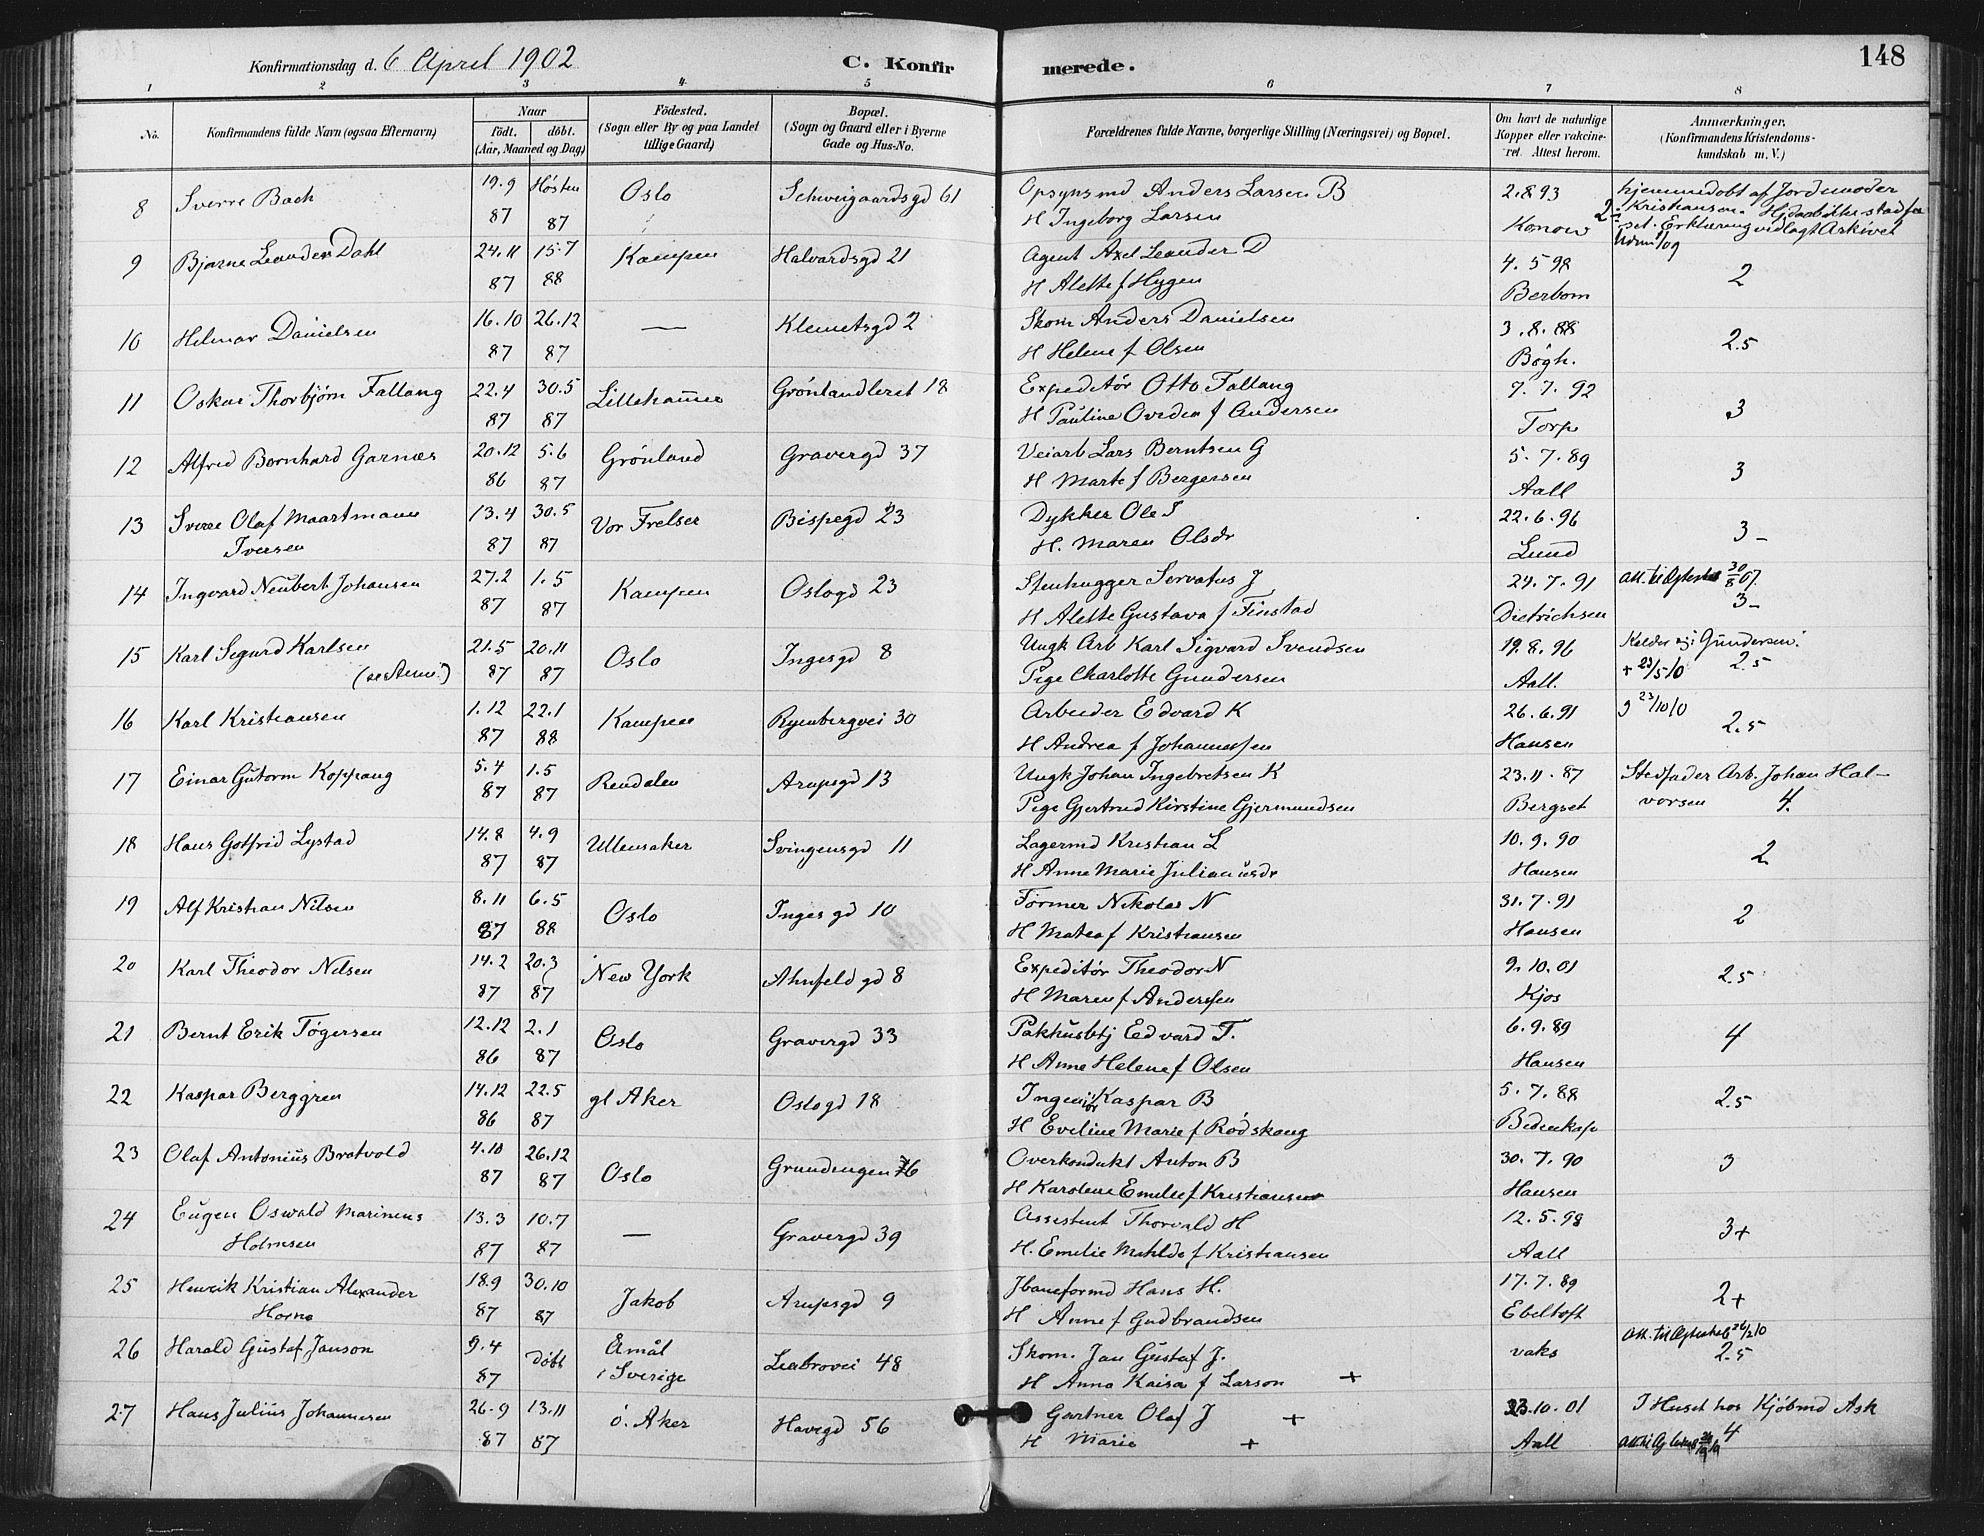 148
Konfirmationsdag d. 6 April 1902 C. Konfirmerede.
1 2 3 4 5 6 7 8
No. Konfirmandens fulde Navn (ogsaa Efternavn) Naar födt. döbt. (Aar, Maaned og Dag) Födested. (Sogn eller By og paa Landet tillige Gaard) Bopæl. (Sogn og Gaard eller i Byerne Gade og Hus-No. Forældrenes fulde Navne, borgerlige Stilling (Næringsvei) og Bopæl. Om havt de naturlige Kopper eller vakcineret. Attest herom. Anmærkninger, (Konfirmandens Kristendomskundskab m. V.)
8 Sverre Bach 19.9 87 Høsten 87 Oslo Schweigaardsgd 61 Opsynsmd Anders Larsen B 2.8.93 hjemmedøbt af Jordmoder
H Ingeborg Larsen Konow Kristiansen. Erklæring vedlagt Arkivet
9 Bjarne Leander Dahl 24.11 15.7 Kampen Halvardsgd 21 Agent Axel Leander D 4.5 98
87 88 H Alette f Hygen Berbom 2
10 Helmer Danielsen 16.10 26.12 — Klemetsgd 2 Skom Anders Danielsen 3.8.88
87 87 H Helene f Olsen Bögh. 2.5
11 Oskar Thorbjørn Fallang 22.4 30.5 Lillehamer Grønlandleret 18 Expeditør Otto Fallang 7.7.92
87 87 H Pauline Ovedea f Andersen Torp 3
12 Alfred Bernhard Garnæs 20.12 5.6 Grønland Gravergd 37 Veiarb Lars Berntsen G 5.7.89
86 87 H Marte f Bergersen Aall 3
13 Sverre Olaf Maartmann 13.4 30.5 Vor Frelser Bispegd 23 Dykker Ole I 22.6.96
Iversen 87 87 H. Maren Olsdr Lund 3-
14 Ingvard Neubert Johansen 27.2 1.5 Kampen Oslogd 23 Stenhugger Servatus J 24.7.91 Att. til Ægteskab 30/8 07.
87 87 H Alette Gustava f Finstad Dietrichsen 3-
15 Karl Segurd Karlsen 21.5 20.11 Oslo Ingesgd 8 Ungk Arb Karl Sigvard Svendsen 19.8.96 Kalder sig: Gundersen.
(se Anm.) 87 87 Pige Charlotte Gundersen Aall. + 23/5 10 2.5
16 Karl Kristiansen 1.12 22.1 Kampen Rynbergvei 30 Arbeider Edvard K 26.6.91 23/10 10
87 88 H Andrea f Johannessen Hansen 2.5
17 Einar Gutorm Koppang 5.4 1.5 Rendalen Arupsgd 13 Ungk Johan Ingebretsen K 23.11.87 Stedfader Arb. Johan Hal-
87 87 Pige Gjertrud Kirstine Gjermundsen Bergset vorsen 4.
18 Hans Gotfrid Lystad 14.8 4.9 Ullensaker Svingensgd 11 Lagermd Kristian L 10.9.90
87 87 H Anne Marie Julianusdr Hansen 2
19 Alf Kristian Nilsen 8.11 6.5 Oslo Ingesgd 10 Former Nikolai N 31.7.91
87 88 H Matea f Kristiansen Hansen 2
20 Karl Theodor Nilsen 14.2 20.3 New York Ahnfeldgd 8 Expeditør Theodor N 9.10.01
87 87 H Maren f Anderssen Kjos 2.5
21 Bernt Erik Tøgersen 12.12 2.1 Oslo Gravergd 33 Pakhusbtj Eedvard T. 6.9.89
86 87 H Anne Helene f Olsen Hansen 4
22 Kaspar Berggren 14.12 22.5 gl Aker Oslogd 18 Ingeniør Kaspar B 5.7.88
86 87 H Eveline Marie f Rødskoug Bidenkap 2.5
23 Olaf Antonius Bratvold 4.10 26.12 Oslo Grundingen 76 Overkondukt Anton B 30.7.90
87 87 H Karolene Emilie f Kristiansen Hansen 3
24 Eugen Oswald Marinus 13.3 10.7 — Gravergd 39 Assistent Thorvald H 12.5.98
Holmsen 87 87 H. Emilie Matilde f Kristiansen Aall 3+
25 Henrik Kristian Alexander 18.9 30.10 Jakob Arupsgd 9 Jbaneformd Hans H. 17.7.89
Horne 87 87 H Anne f Gudbrandsen Ebeltoft 2+
26 Harald Gustaf Janson 9.4 døbt Åmål Ljabrovei 48 Skom. Jan Gustaf J. vaks Att. til Ægteskab
87 i Sverige H Anna Kaisa f Larson + 2.5
27 Hans Julius Johannesen 26.9 13.11 ö. Aker Havegd 56 Gartner Olaf J + 23.10.01 I Huset hos Kjøbmd Ask
87 87 H Marie + Aall 4